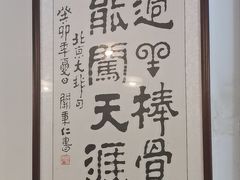 過
棒骨
能闖天涯
北京大
癸卯年夏日 關東仁書